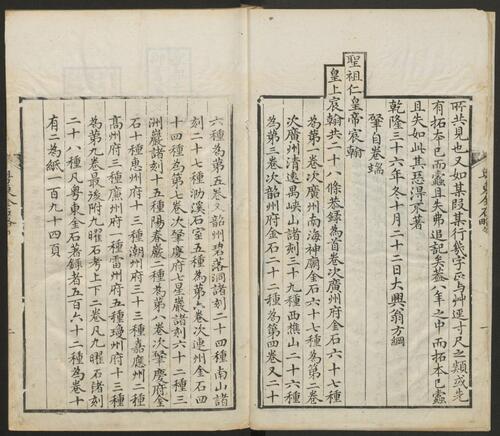 所共見也又如某段某行幾字正与艸逕寸尺之類或先
有拓本已而蠹且失弗追記矣蓋八年之中而拓本已蠹
且失如此其惡得不著
乾隆三十六年冬十月二十二日大興翁方綱
肇自卷端
聖祖仁皇帝宸翰
皇上宸翰共二十八條恭錄為首卷次廣州府金石六十七種
為第一卷次廣州南海神廟金石六十七種為第二卷
次廣州清遠禺峽山諸刻二十九種西樵山二十六種
為第三卷次韶州府金石二十七種為第四卷又二十
六種為第五卷又韶州碧落洞諸刻二十四種南山諸
刻二十七種泐溪石室五種為第六卷次連州金石四
十四種為第七卷次肇慶府七星巖諸刻六十二種三
洲巖諸刻十五種陽春巖二種為第八卷次肇慶府金
石十種惠州府十三種潮州府三十三種嘉應州二種
高州府三種廉州府一種雷州府五種瓊州府十三種
為第九卷最後附九曜石考上下二卷凡九曜石諸刻
二十八種凡粵東金石著錄者五百六十二種為卷十
有二為紙一百九十四頁